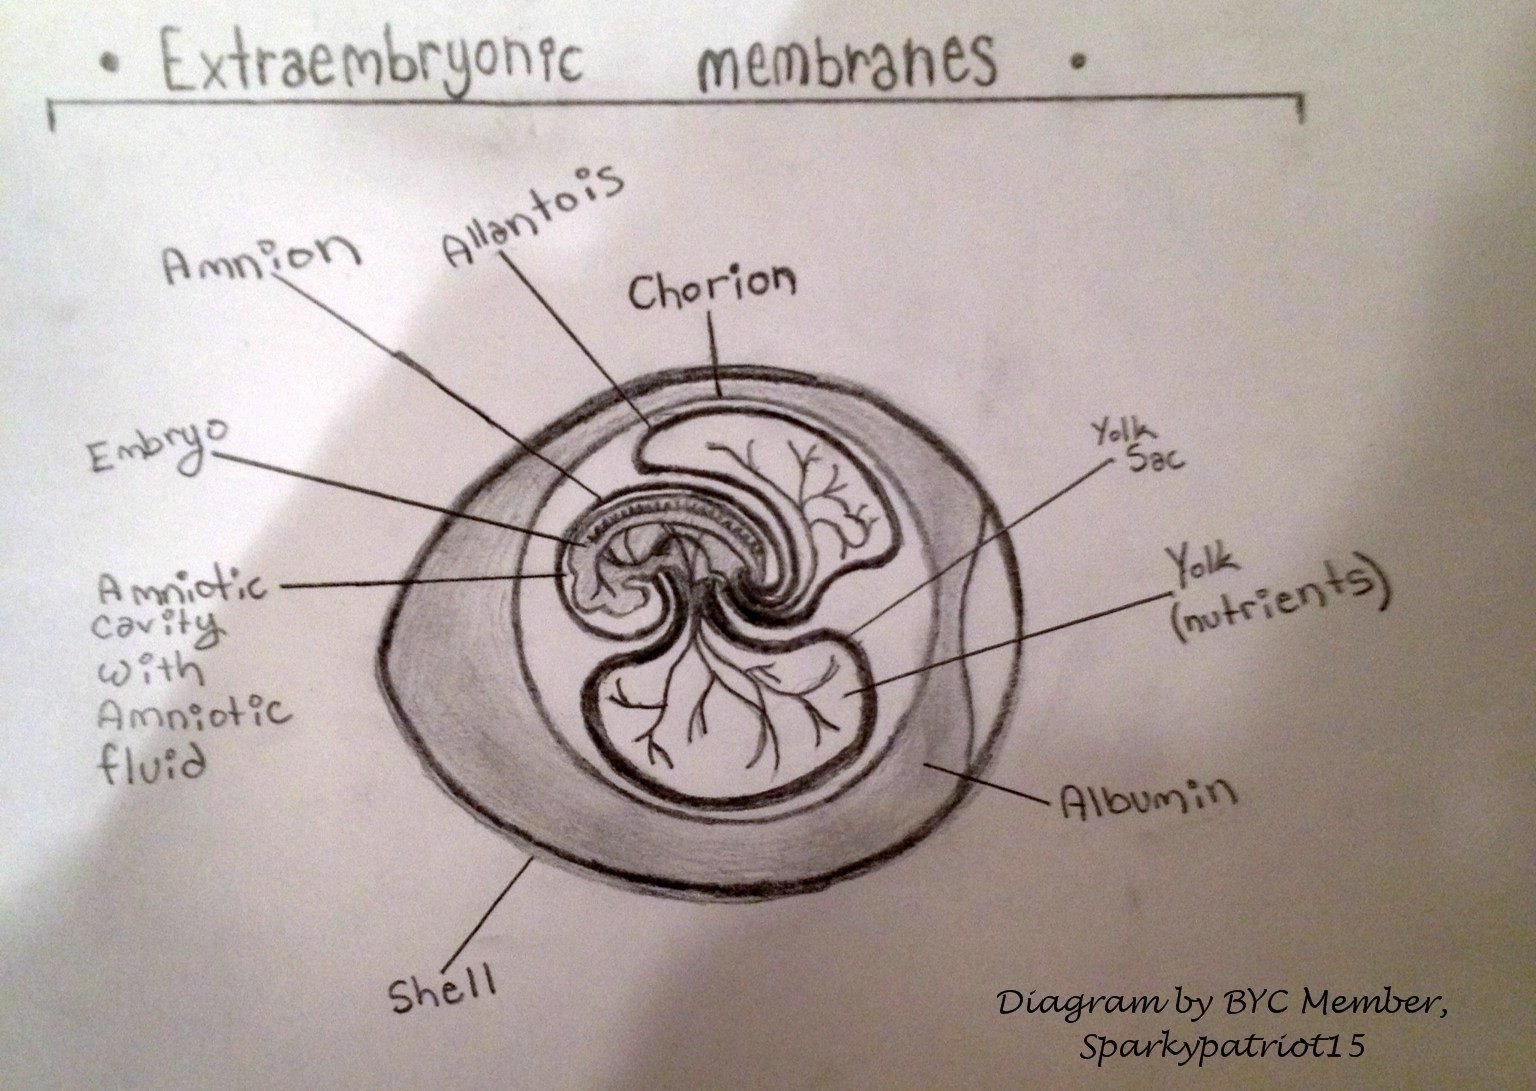 • Extraembryonic membranes •
Amnion
Allantois
Chorion
Embryo
Yolk
Sac
Amniotic
cavity
with
Amniotic
fluid
Yolk
(nutrients)
Albumin
Shell
Diagram by BYC Member,
Sparkypatriot15